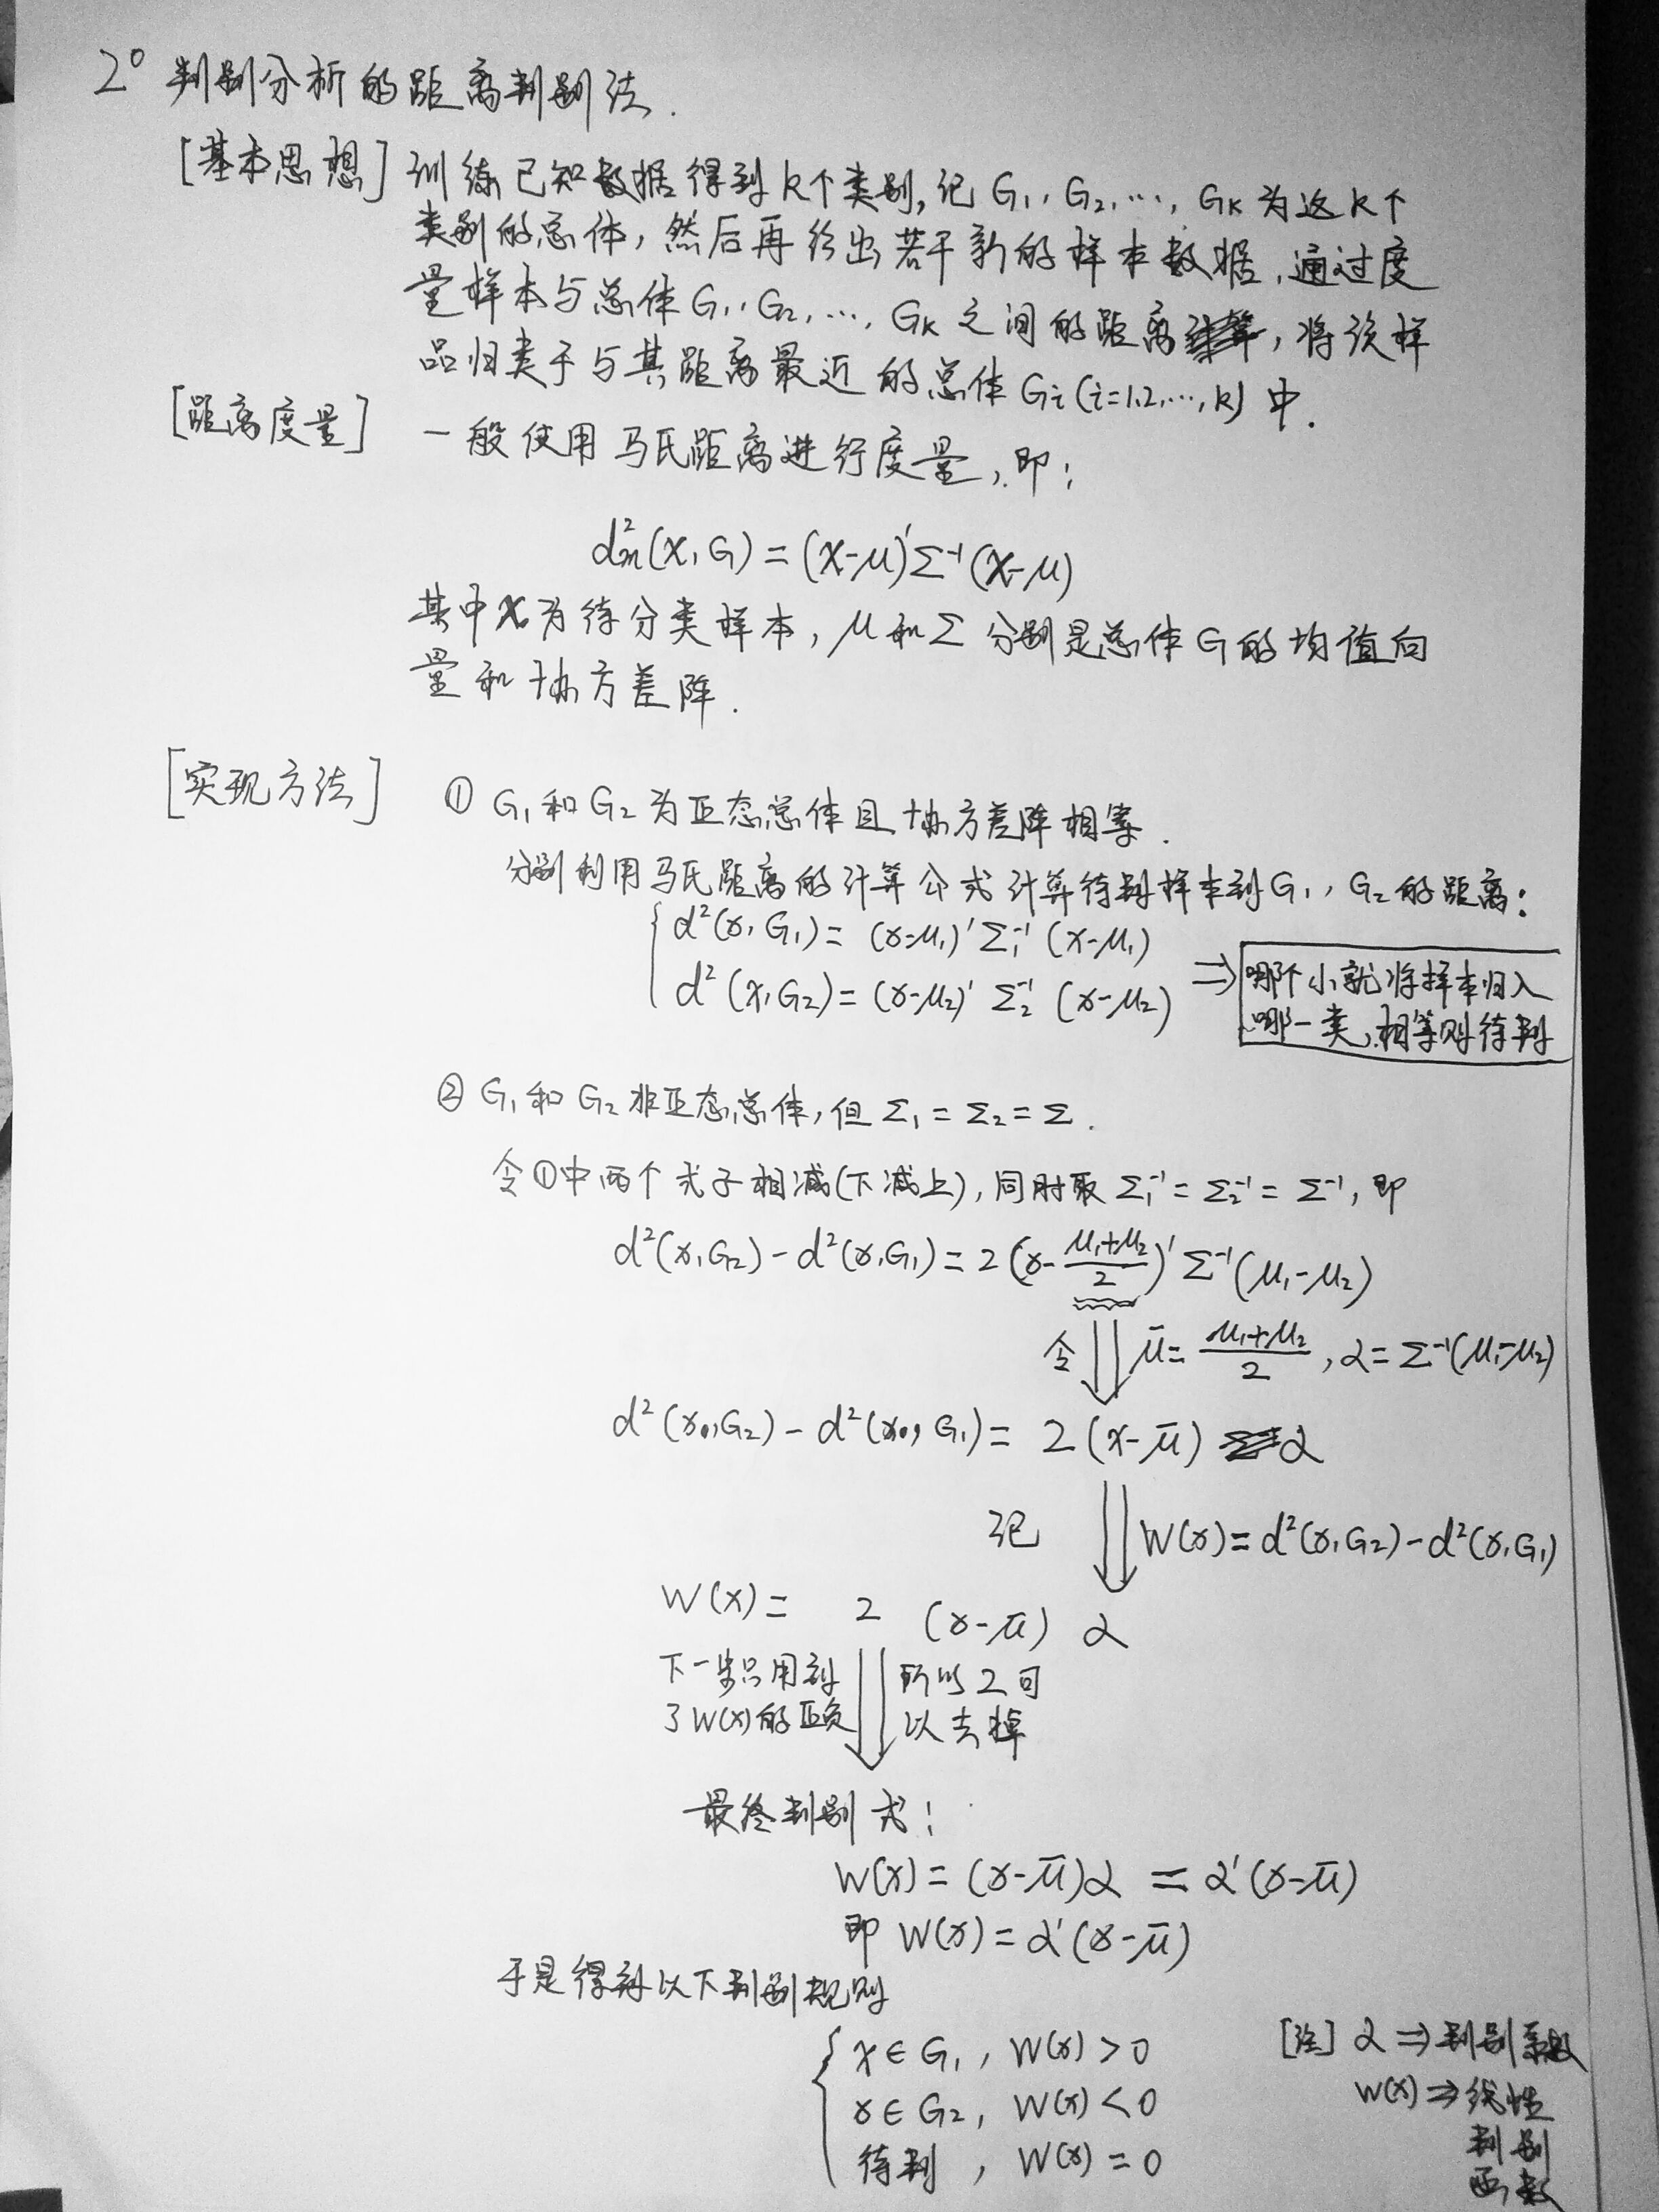 2° 判别分析的距离判别法.
[基本思想] 训练已知数据得到k个类别,记 G₁, G₂, …, Gk 为这k个
类别的总体, 然后再给出若干新的样本数据, 通过度
量样本与总体 G₁, G₂, …, Gk 之间的距离, 将该样
品归类于与其距离最近的总体 Gi (i=1,2,…,k) 中.
[距离度量] 一般使用马氏距离进行度量, 即:
d²m(x, G) = (x-μ)'Σ⁻¹(x-μ)
其中x为待分类样本, μ和Σ 分别是总体G的均值向
量和协方差阵.
[实现方法] ① G₁和G₂为正态总体且协方差阵相等.
分别利用马氏距离的计算公式计算待判样本到G₁, G₂的距离:
{ d²(x, G₁) = (x-μ₁)' Σ₁⁻¹ (x-μ₁)
d²(x, G₂) = (x-μ₂)' Σ₂⁻¹ (x-μ₂)
⇒ 哪个小就将样本归入
哪一类, 相等则待判
② G₁和G₂非正态总体, 但 Σ₁ = Σ₂ = Σ.
令①中两个式子相减(下减上), 同时取 Σ₁⁻¹ = Σ₂⁻¹ = Σ⁻¹, 即
d²(x, G₂) - d²(x, G₁) = 2(x - (μ₁+μ₂)/2)' Σ⁻¹(μ₁-μ₂)
令 ⇓ μ̄ = (μ₁+μ₂)/2, α = Σ⁻¹(μ₁-μ₂)
d²(x, G₂) - d²(x, G₁) = 2(x-μ̄) α
记 ⇓ W(x) = d²(x, G₂) - d²(x, G₁)
W(x) = 2 (x-μ̄) α
下一步只用到 ⇓ 所以2可
了W(x)的正负 以去掉
最终判别式:
W(x) = (x-μ̄)α = α'(x-μ̄)
即 W(x) = α'(x-μ̄)
于是得到以下判别规则
{ x∈G₁, W(x) > 0
x∈G₂, W(x) < 0
待判, W(x) = 0
[注] α ⇒ 判别系数
W(x) ⇒ 线性
判别
函数